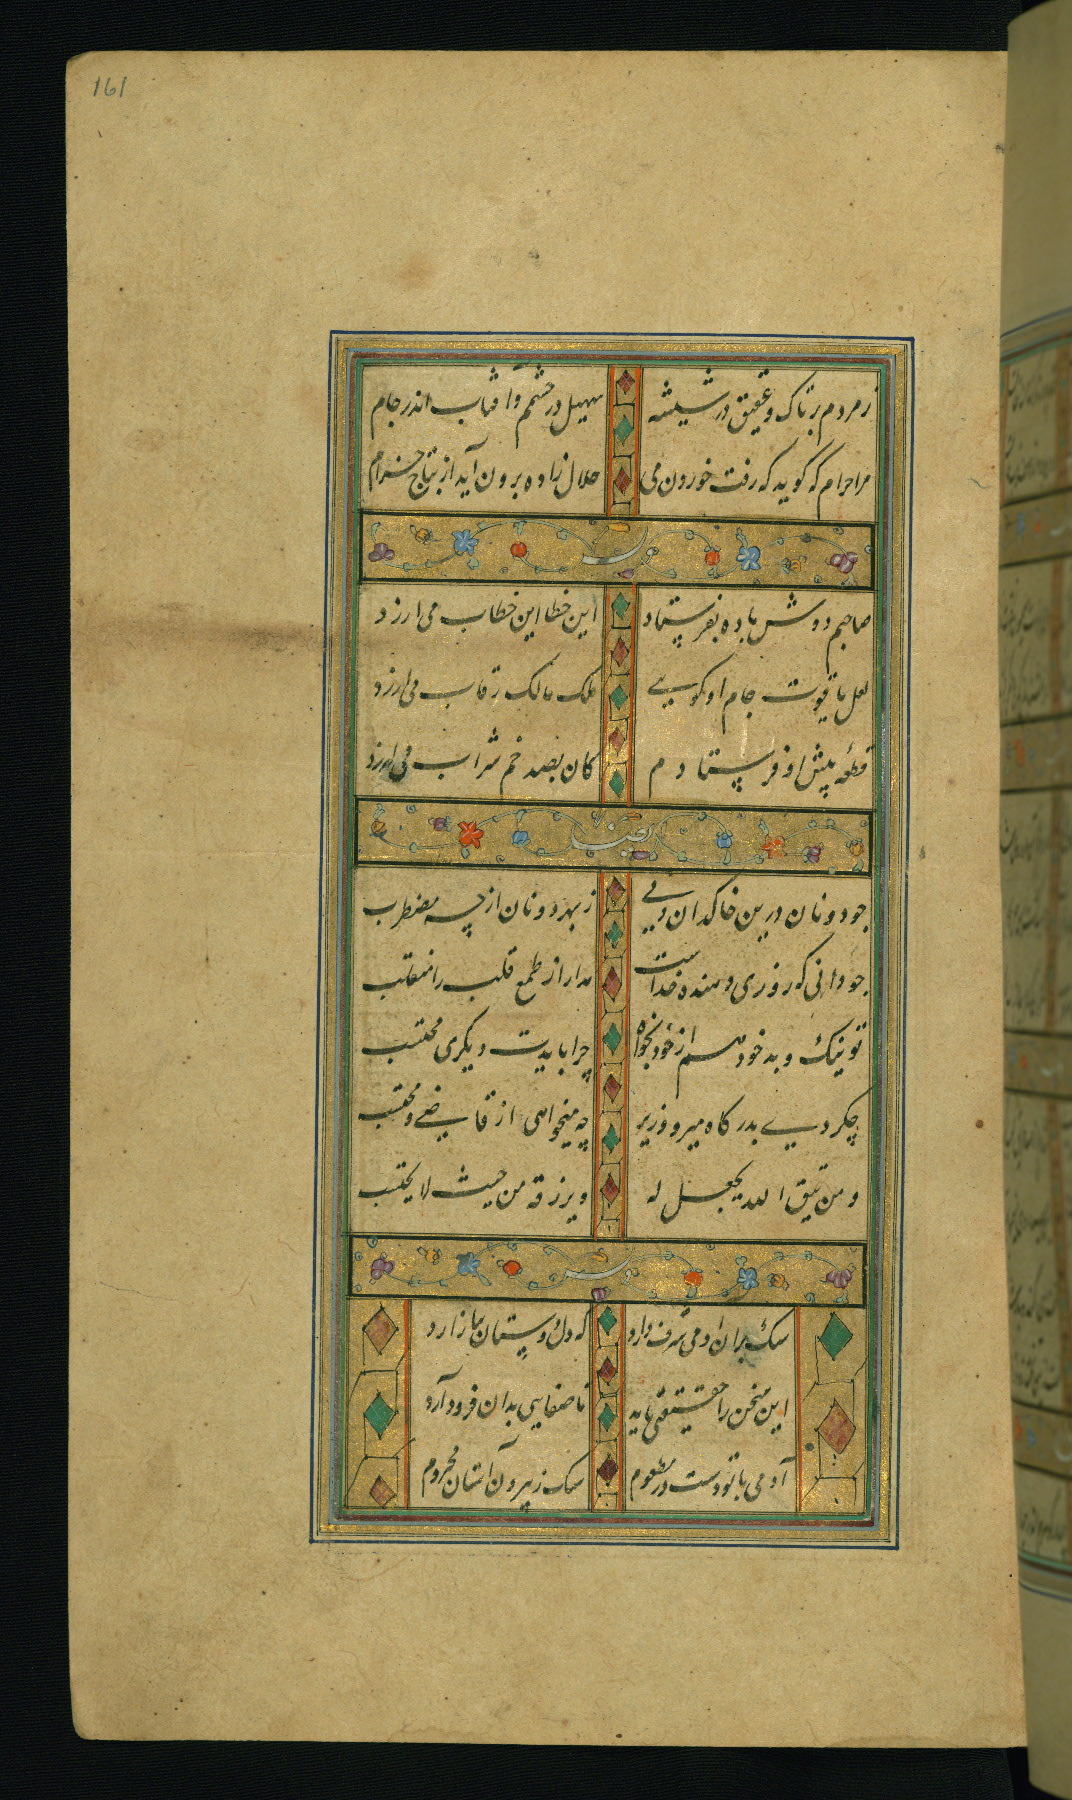 161
زمردم بر تاک و عقیق در شیشه سهیل در خشم و آفتاب اندر جام
مرا حرام که گوید که رفت خوردن می حلال زاده برون آید از نتاج حرام
وله
صاحبم دوش باده نفرستاد این خطا این خطاب می ارزد
لعل یاقوت جام او گویی ملک مالک رقاب می ارزد
قطعه پیش او فرستادم کان بصد خم شراب می ارزد
ایضا
چو دونان درین خاکدان دنی ز بهر دو نان از چه مضطرب
چو دانی که روزی دهنده خداست مدار از طمع قلب را منقلب
تو نیک و بد خود هم از خود بخواه چرا بایدت دیگری محتسب
چکردی بدرگاه میر و وزیر چه میخواهی از قاضی و محتسب
و من یتق الله یجعل له و یرزقه من حیث لا یحتسب
وله
سگ بران آدمی شرف دارد که دل دوستان بیازارد
این سخن را حقیقتی باید تا معانی بدان فرود آرد
آدمی با تو دست در مطعوم سگ ز بیرون آستان محروم